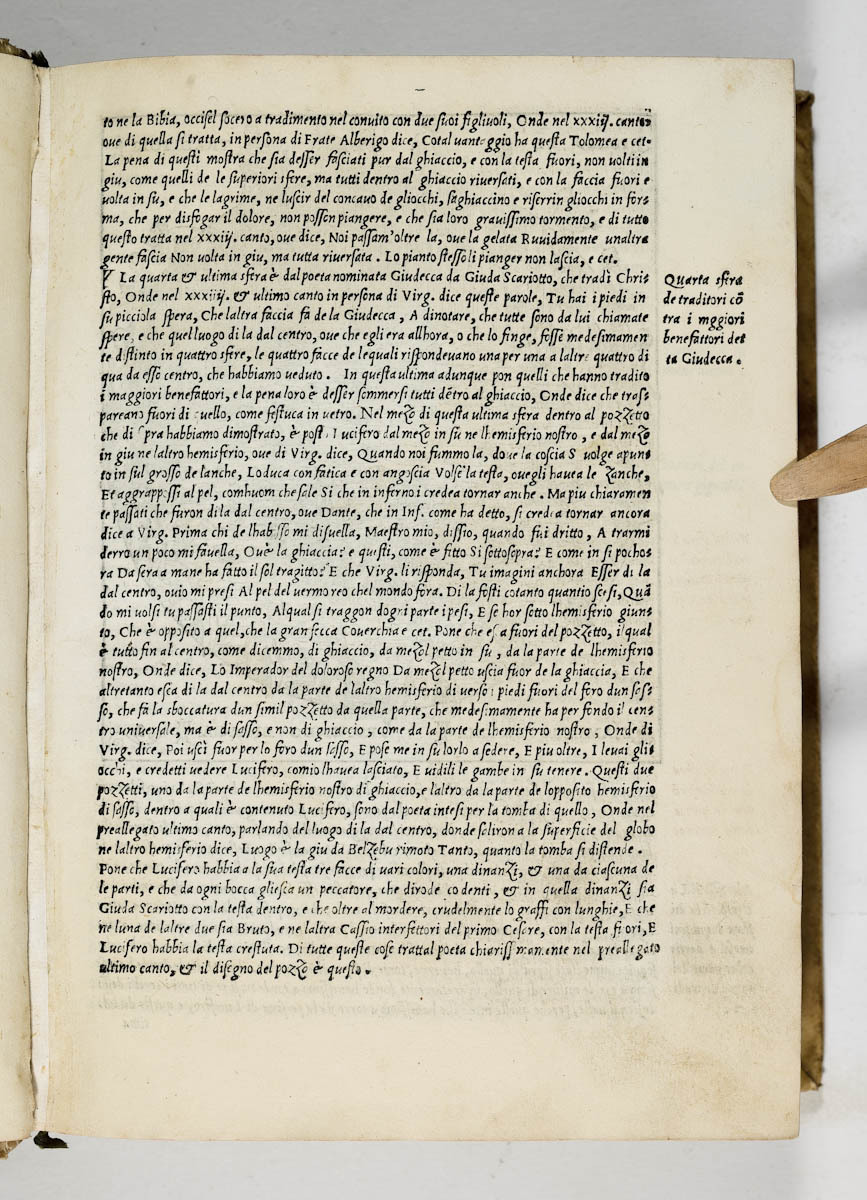 to ne la Bibia, occisel socero a tradimento nel conuito con due suoi figliuoli, Onde nel xxxiij. canto
oue di quella si tratta, in persona di Frate Alberigo dice, Cotal uantaggio ha questa Tolomea e cet.
La pena di questi mostra che sia desser fasciati pur dal ghiaccio, e con la testa fuori, non uolti in
giu, come quelli de le superiori sfere, ma tutti dentro al ghiaccio riuersati, e con la faccia fuori e
uolta in su, e che le lagrime, ne luscir del concauo de gliocchi, saghiaccino e riserrin gliocchi in for-
ma, che per disfogar il dolore, non posson piangere, e che sia loro grauissimo tormento, e di tutto
questo tratta nel xxxiij. canto, oue dice, Noi passam'oltre la, oue la gelata Ruuidamente unaltra
gente fascia Non uolta in giu, ma tutta riuersata. Lo pianto stesso li pianger non lascia, e cet.
La quarta & ultima sfera è dal poeta nominata Giudecca da Giuda Scariotto, che tradì Chri-
sto, Onde nel xxxiiij. & ultimo canto in persona di Virg. dice queste parole, Tu hai i piedi in
su picciola spera, Che laltra faccia fà de la Giudecca, A dinotare, che tutte sono da lui chiamate
spere, e che quel luogo di la dal centro, oue che egli era allhora, o che lo finge, fosse medesimamen
te distinto in quattro sfere, le quattro facce de lequali rispondeuano una per una a laltre quattro di
qua da esso centro, che habbiamo ueduto. In questa ultima adunque pon quelli che hanno tradito
i maggiori benefattori, e la pena loro è desser sommersi tutti dētro al ghiaccio, Onde dice che tras-
pareano fuori di quello, come festuca in uetro. Nel mezo di questa ultima sfera dentro al pozzetto
che di sopra habbiamo dimostrato, è posto Lucifero dal mezo in sù ne lhemisferio nostro, e dal mezo
in giu ne laltro hemisferio, oue di Virg. dice, Quando noi fummo la, doue la coscia S uolge apun-
to in sul grosso de lanche, Lo duca con fatica e con angoscia Volse la testa, ouegli hauea le zanche,
Et aggrappossi al pel, comhuom che sale Si che in inferno i credea tornar anche. Ma piu chiaramen
te passati che furon di la dal centro, oue Dante, che in Inf. come ha detto, si credea tornar ancora
dice a Virg. Prima chi de lhabisso mi disuella, Maestro mio, dissio, quando fui dritto, A trarmi
derro un poco mi fauella, Ouè la ghiaccia? e questi, come è fitto Si sottosopra? E come in si poch'o-
ra Da sera a mane ha fatto il sol tragitto? E che Virg. li risponda, Tu imagini anchora Esser di la
dal centro, ouio mi presi Al pel del uermo reo chel mondo fora. Di la fosti cotanto quantio scesi, Quā
do mi uolsi tu passasti il punto, Alqual si traggon dogni parte i pesi, E se hor sotto lhemisferio giun-
to, Che è opposito a quel, che la gran secca Couerchia e cet. Pone che esca fuori del pozzetto, il qual
è tutto fin al centro, come dicemmo, di ghiaccio, da mezol petto in su, da la parte de lhemisferio
nostro, Onde dice, Lo Imperador del doloroso regno Da mezol petto uscia fuor de la ghiaccia, E che
altretanto esca di la dal centro da la parte de laltro hemisferio di uerso i piedi fuori del foro dun sas-
so, che fà la sboccatura dun simil pozzetto da quella parte, che medesimamente ha per fondo il cen-
tro uniuersale, ma è di sasso, e non di ghiaccio, come da la parte de lhemisferio nostro, Onde di
Virg. dice, Poi uscì fuor per lo foro dun sasso, E pose me in su lorlo a sedere, E piu oltre, I leuai gli
occhi, e credetti uedere Lucifero, comio lhauea lasciato, E uidili le gambe in su tenere. Questi due
pozzetti, uno da la parte de lhemisferio nostro di ghiaccio, e laltro da la parte de lopposito hemisferio
di sasso, dentro a quali è contenuto Lucifero, sono dal poeta intesi per la tomba di quello, Onde nel
preallegato ultimo canto, parlando del luogo di la dal centro, donde saliron a la superficie del globo
ne laltro hemisferio dice, Luogo è la giu da Belzebu rimoto Tanto, quanto la tomba si distende.
Pone che Lucifero habbia a la sua testa tre facce di uari colori, una dinanzi, & una da ciascuna de
le parti, e che da ogni bocca gliesca un peccatore, che dirode co denti, & in quella dinanzi sia
Giuda Scariotto con la testa dentro, e che oltre al mordere, crudelmente lo graffi con lunghie, E che
ne luna de laltre due sia Bruto, e ne laltra Cassio interfettori del primo Cesare, con la testa fuori, E
Lucifero habbia la testa crestuta. Di tutte queste cose trattal poeta chiarissimamente nel preallegato
ultimo canto, & il disegno del pozzo è questo.
Quarta sfera
de traditori cō
tra i maggiori
benefattori det
ta Giudecca.